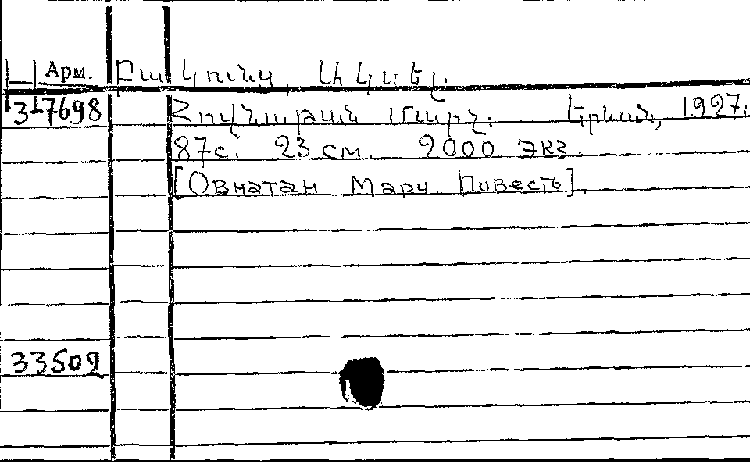 Арм. Բակունց, Ակսել.
3-7698 Հովնաթան Մարչ. Երևան, 1927.
87с. 23 см. 2000 экз.
[Овнатан Марч. Повесть].
33509